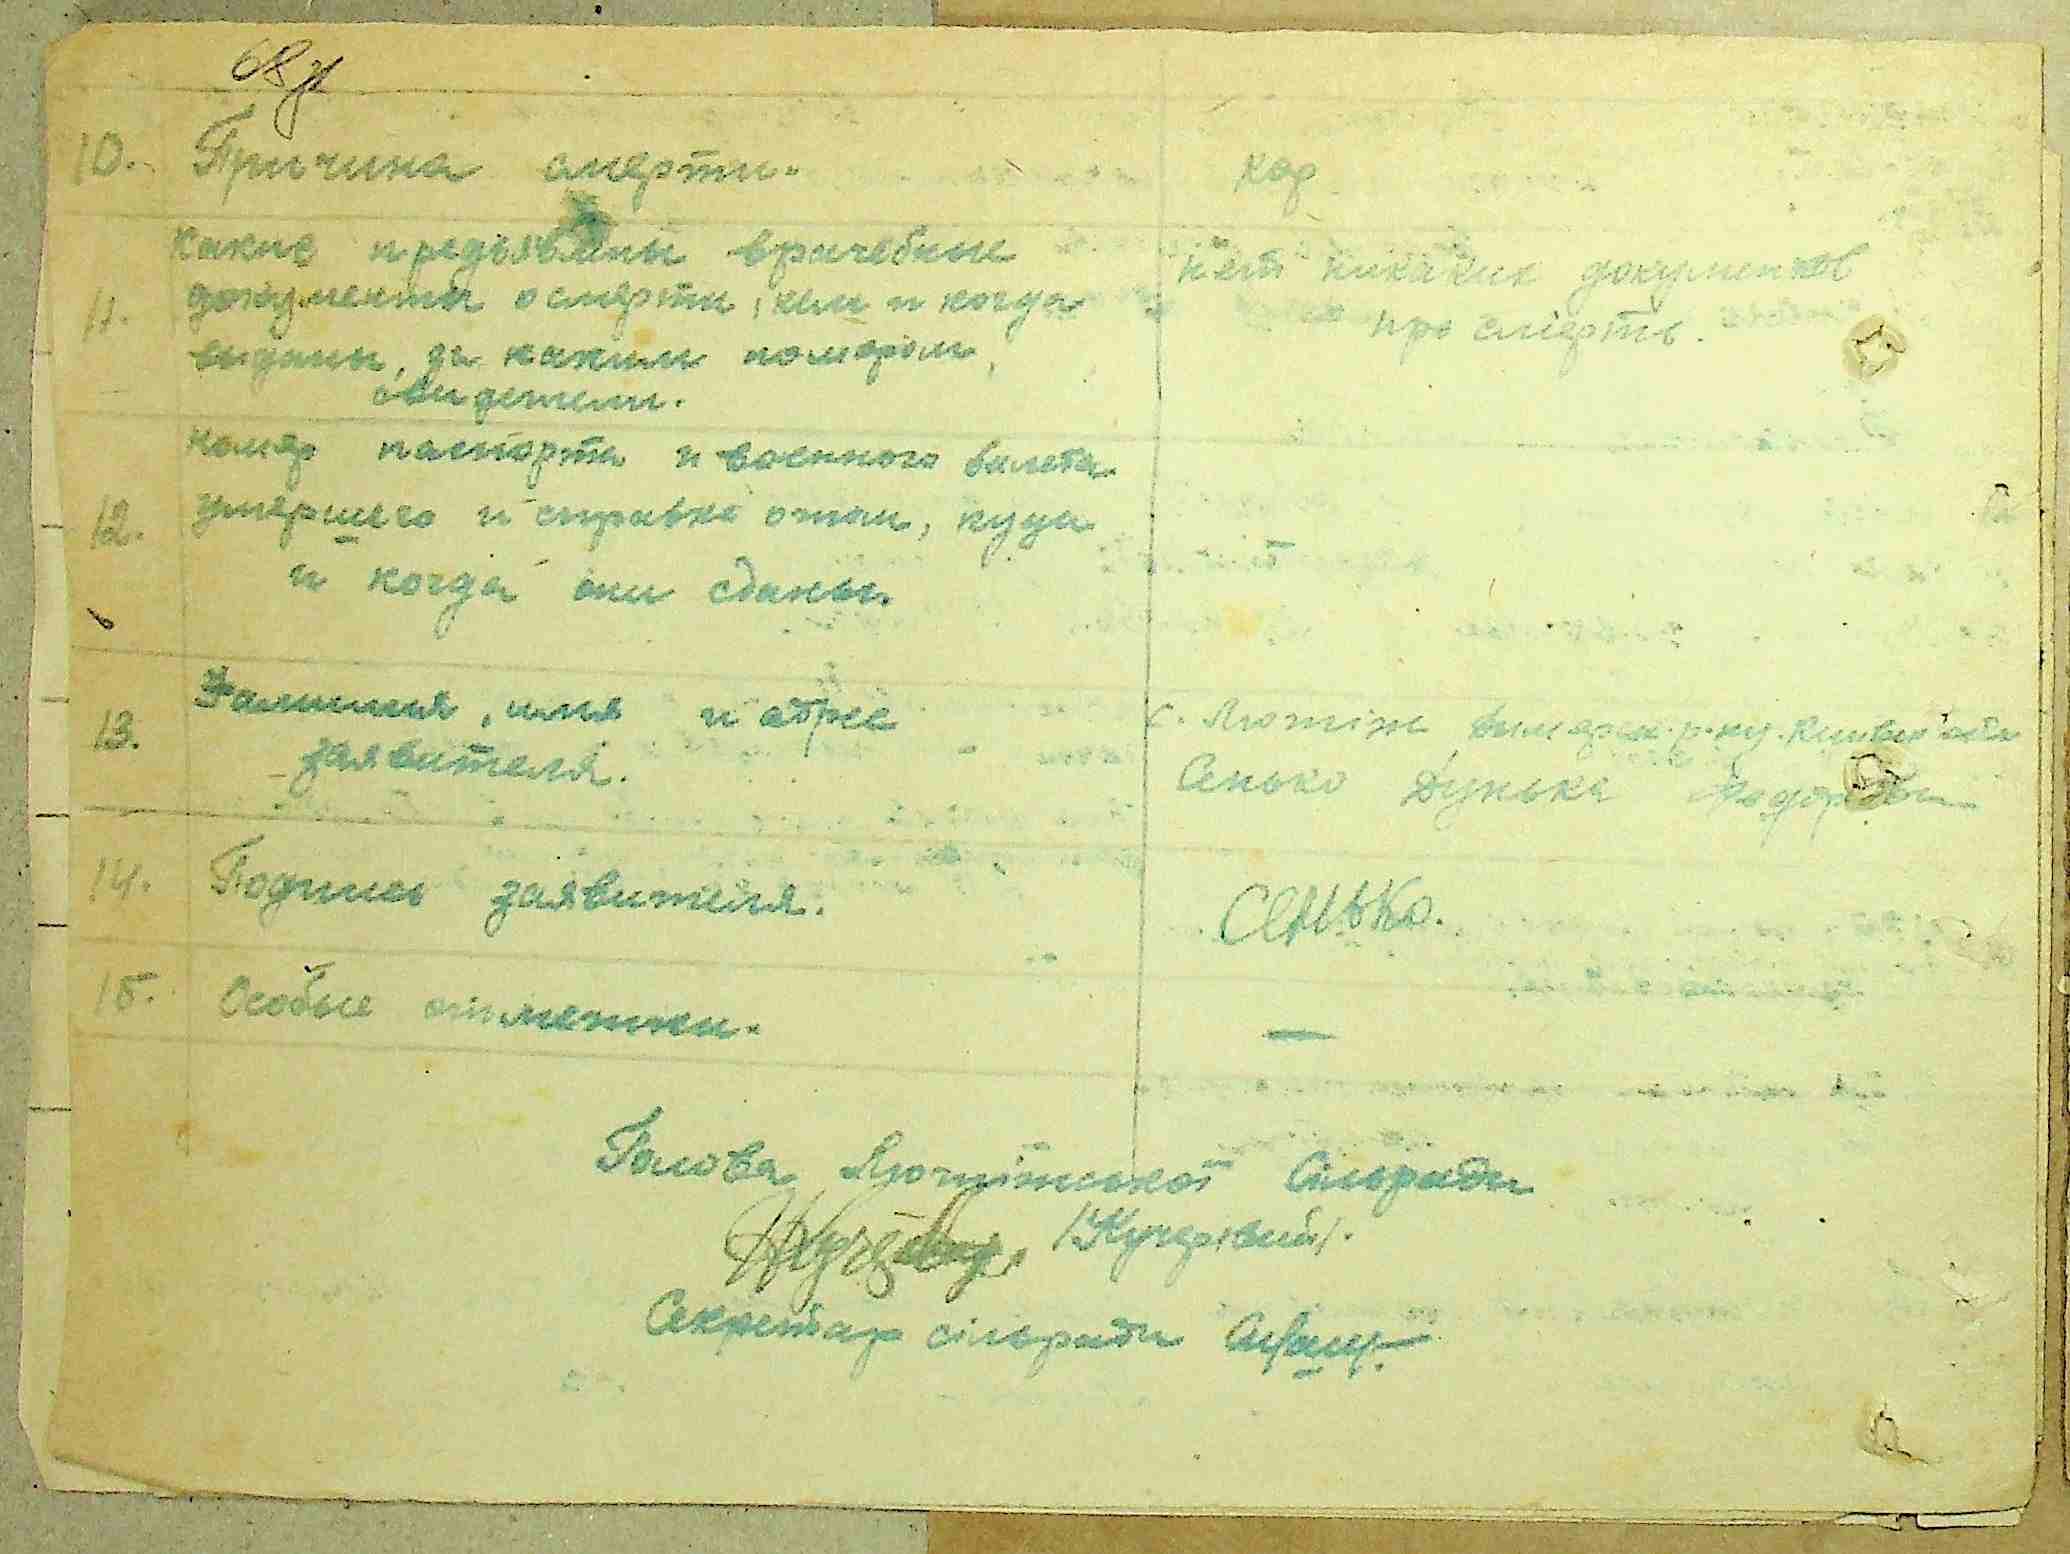 68
10. Причина смерти. кор
Какие предъявлены врачебные
документы о смерти, кем и когда
11. выданы, за каким номером,
свидетели.
нет никаких документов
про смерть.
номер паспорта и военного билета
12. умершего и справка о том, куда
и когда они сданы.
13. Фамилия, имя и адрес
заявителя.
с. Лютіж Димерск. р-ну.
Сенько Дунька
14. Подпись заявителя. Сенько.
15. Особые отметки. —
Голова Лютіжської Сільради
/Кучерівий/.
Секретар сільради